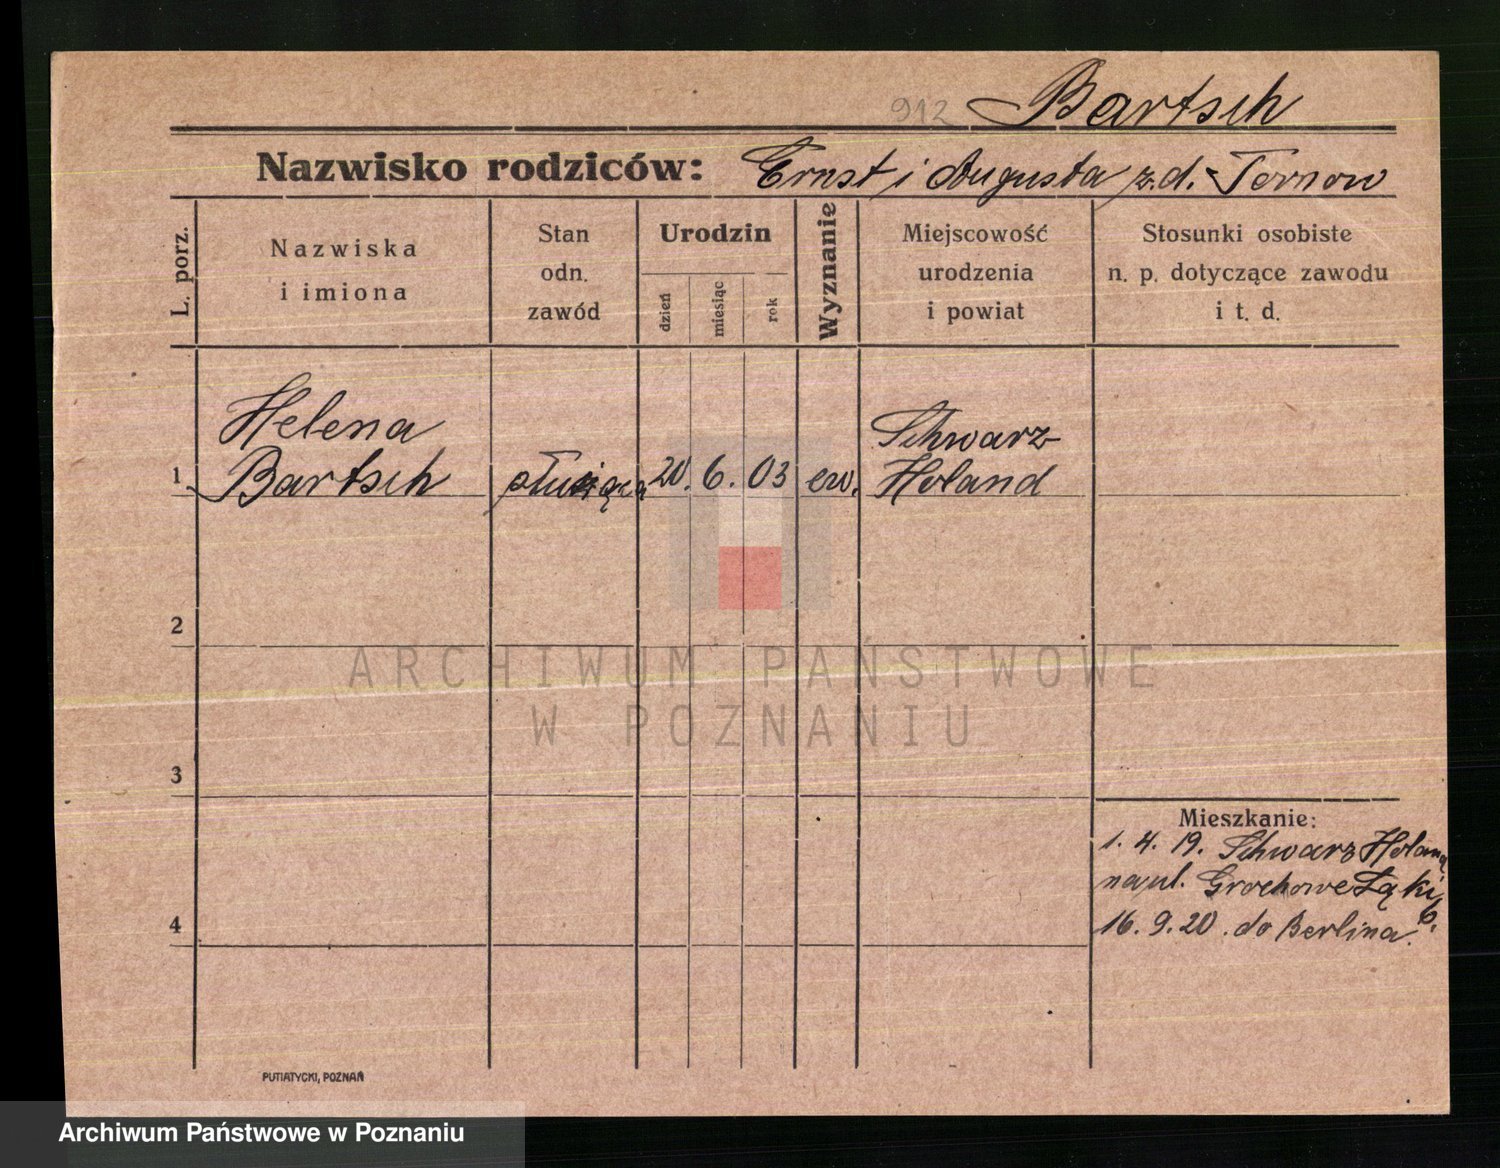 912 Bartsch
Nazwisko rodziców: Ernst i Augusta z.d. Ternow
L. porz.
Nazwiska
i imiona
Stan
odn.
zawód
Urodzin
dzień
miesiąc
rok
Wyznanie
Miejscowość
urodzenia
i powiat
Stosunki osobiste
n. p. dotyczące zawodu
i t. d.
1 Helena
Bartsch
służąca
20. 6. 03
ew.
Schwarz
Holand
2
3
4
Mieszkanie:
1. 4. 19. Schwarz Holand
na ul. Grochowe Łąki
6.
16. 9. 20. do Berlina.
PUTIATYCKI, POZNAŃ
ARCHIWUM PAŃSTWOWE
W POZNANIU
Archiwum Państwowe w Poznaniu